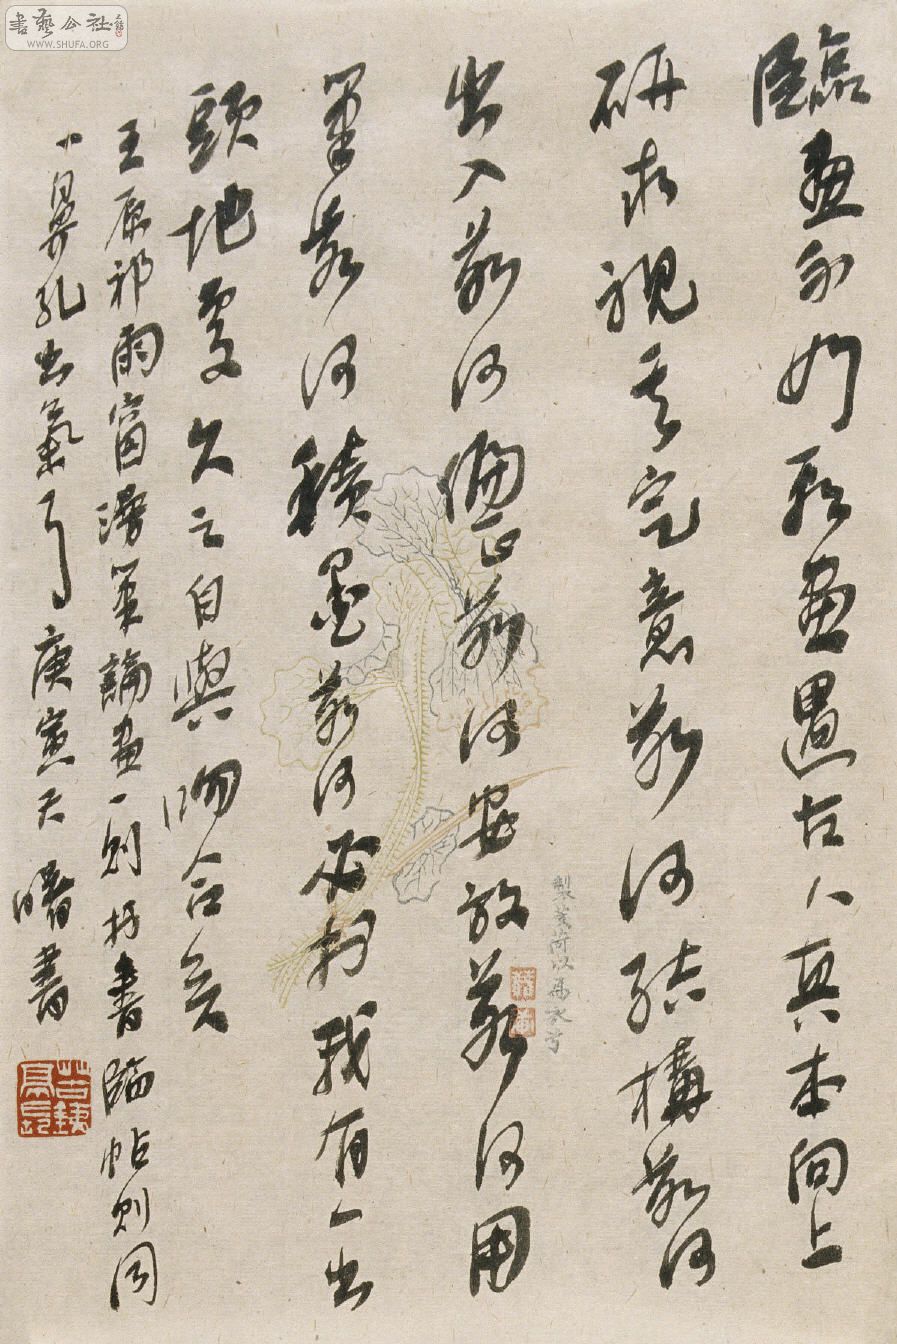 臨畫不如看畫遇古人真本向上
研求視其定意若何結構若何
出入若何偏正若何安放若何用
筆若何積墨若何必於我有一出
頭地處久之自與脗合矣
王原祁雨窗漫筆論畫一則移書臨帖則同
一鼻孔出氣了庚寅天曙書
製芰荷以為衣兮
書藝公社
WWW.SHUFA.ORG